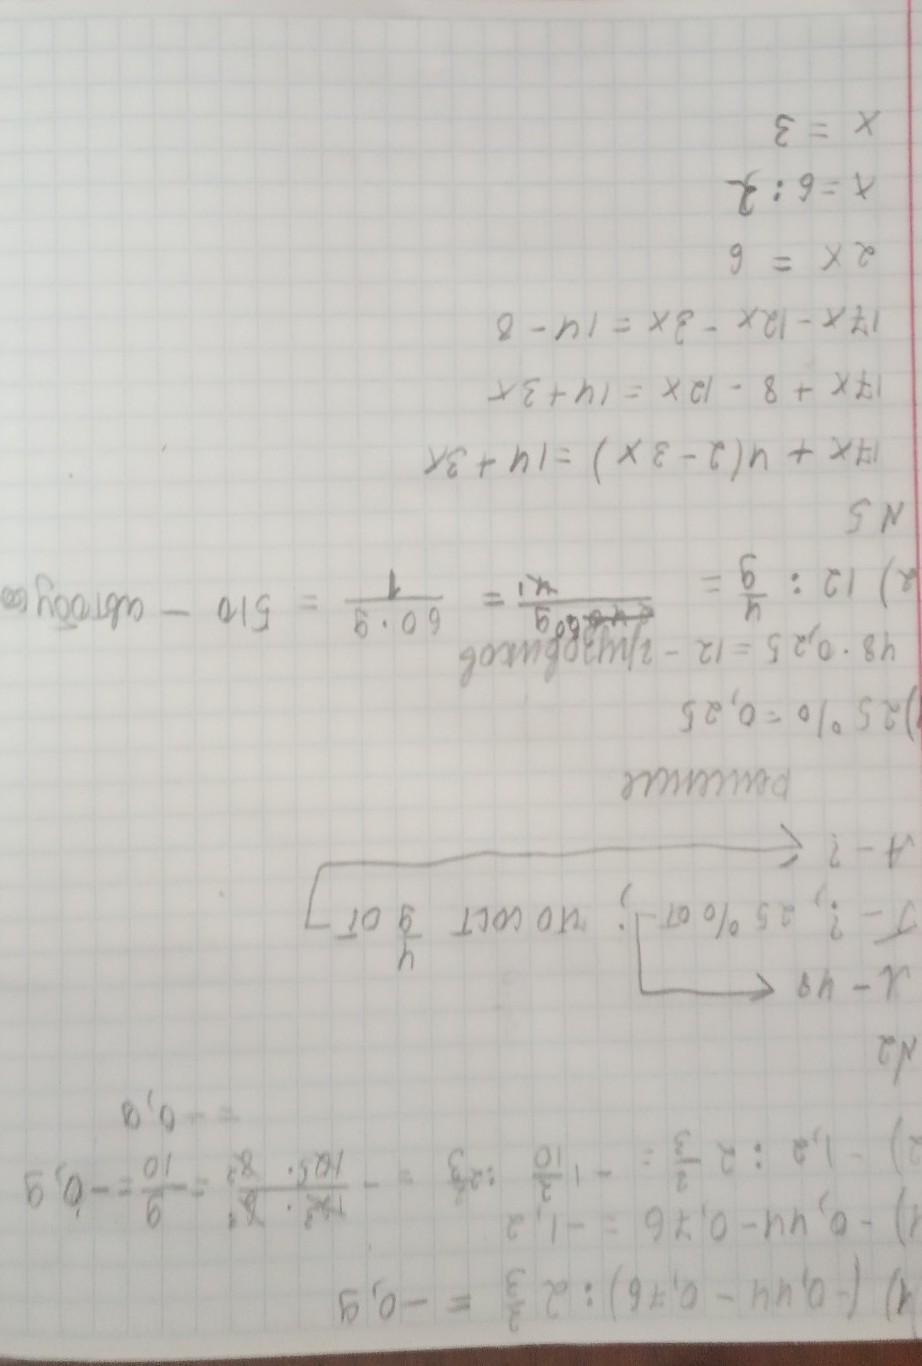 1) (-0,44 - 0,76) : 2 2/3 = -0,9
1) -0,44 - 0,76 = -1,2
2) -1,2 : 2 2/3 = -1 2/10 : 2 2/3 = - = -9/10 = -0,9
= -0,9
N2
Л - 48
Г - ?, 25 % от ; что сост 4/9 от
А - ?
Решение
1) 25 % = 0,25
48 · 0,25 = 12 - грузовиков
2) 12 : 4/9 = = 60·9/1 = 510 - автобусов
N 5
17x + 4(2 - 3x) = 14 + 3x
17x + 8 - 12x = 14 + 3x
17x - 12x - 3x = 14 - 8
2x = 6
x = 6 : 2
x = 3